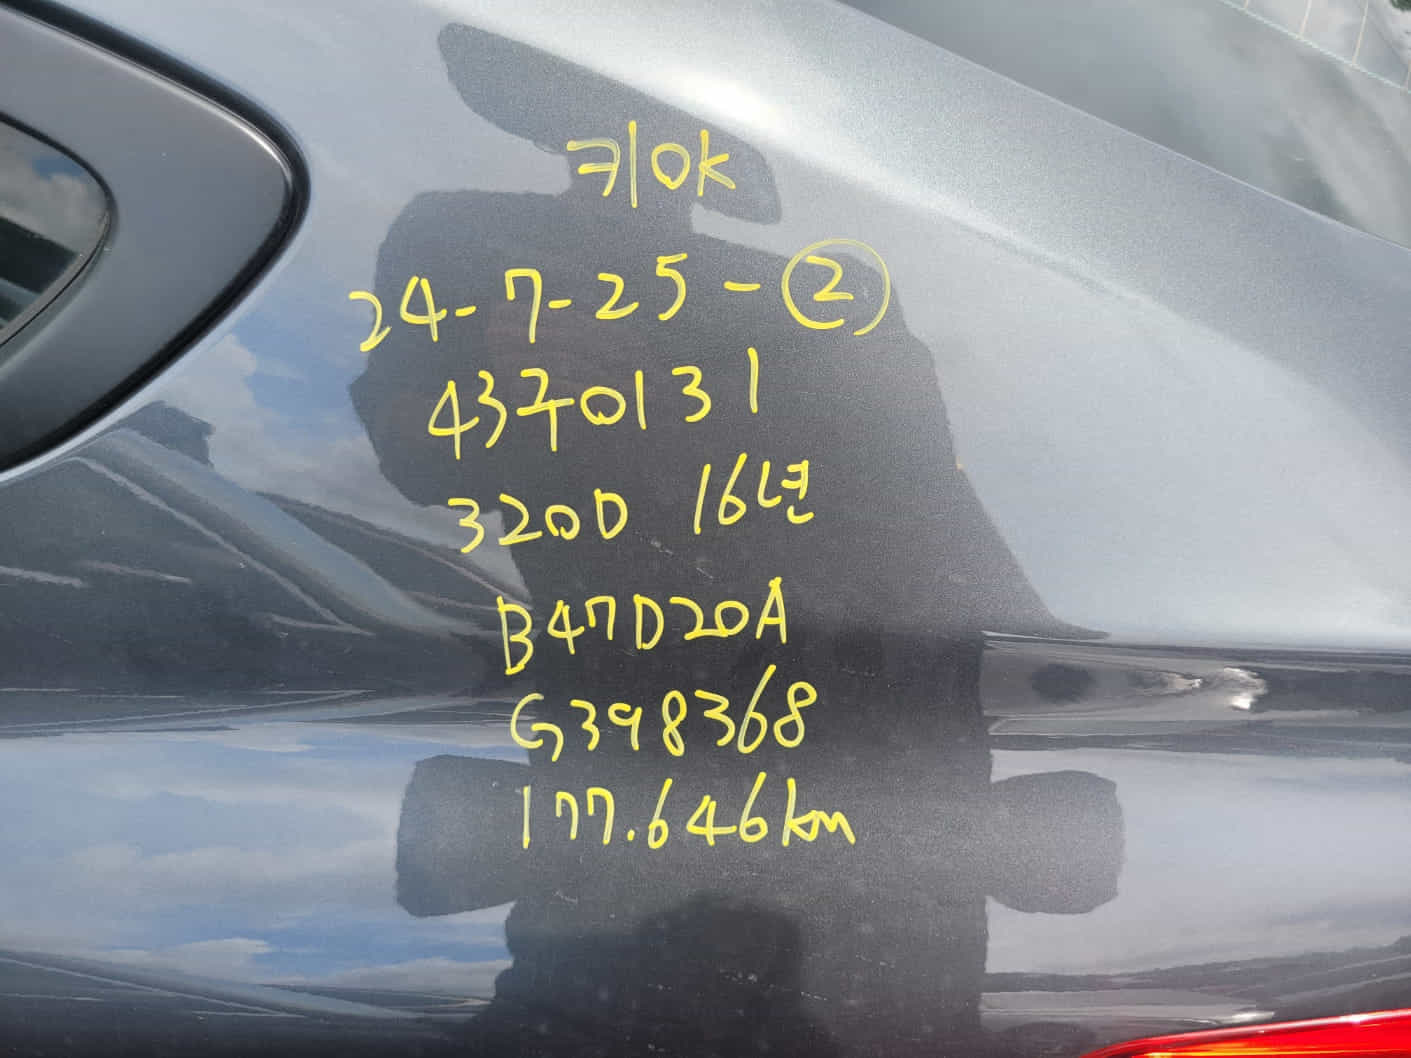 키OK
24-7-25-②
43주0131
320D 16년
B47D20A
G398368
177.646km